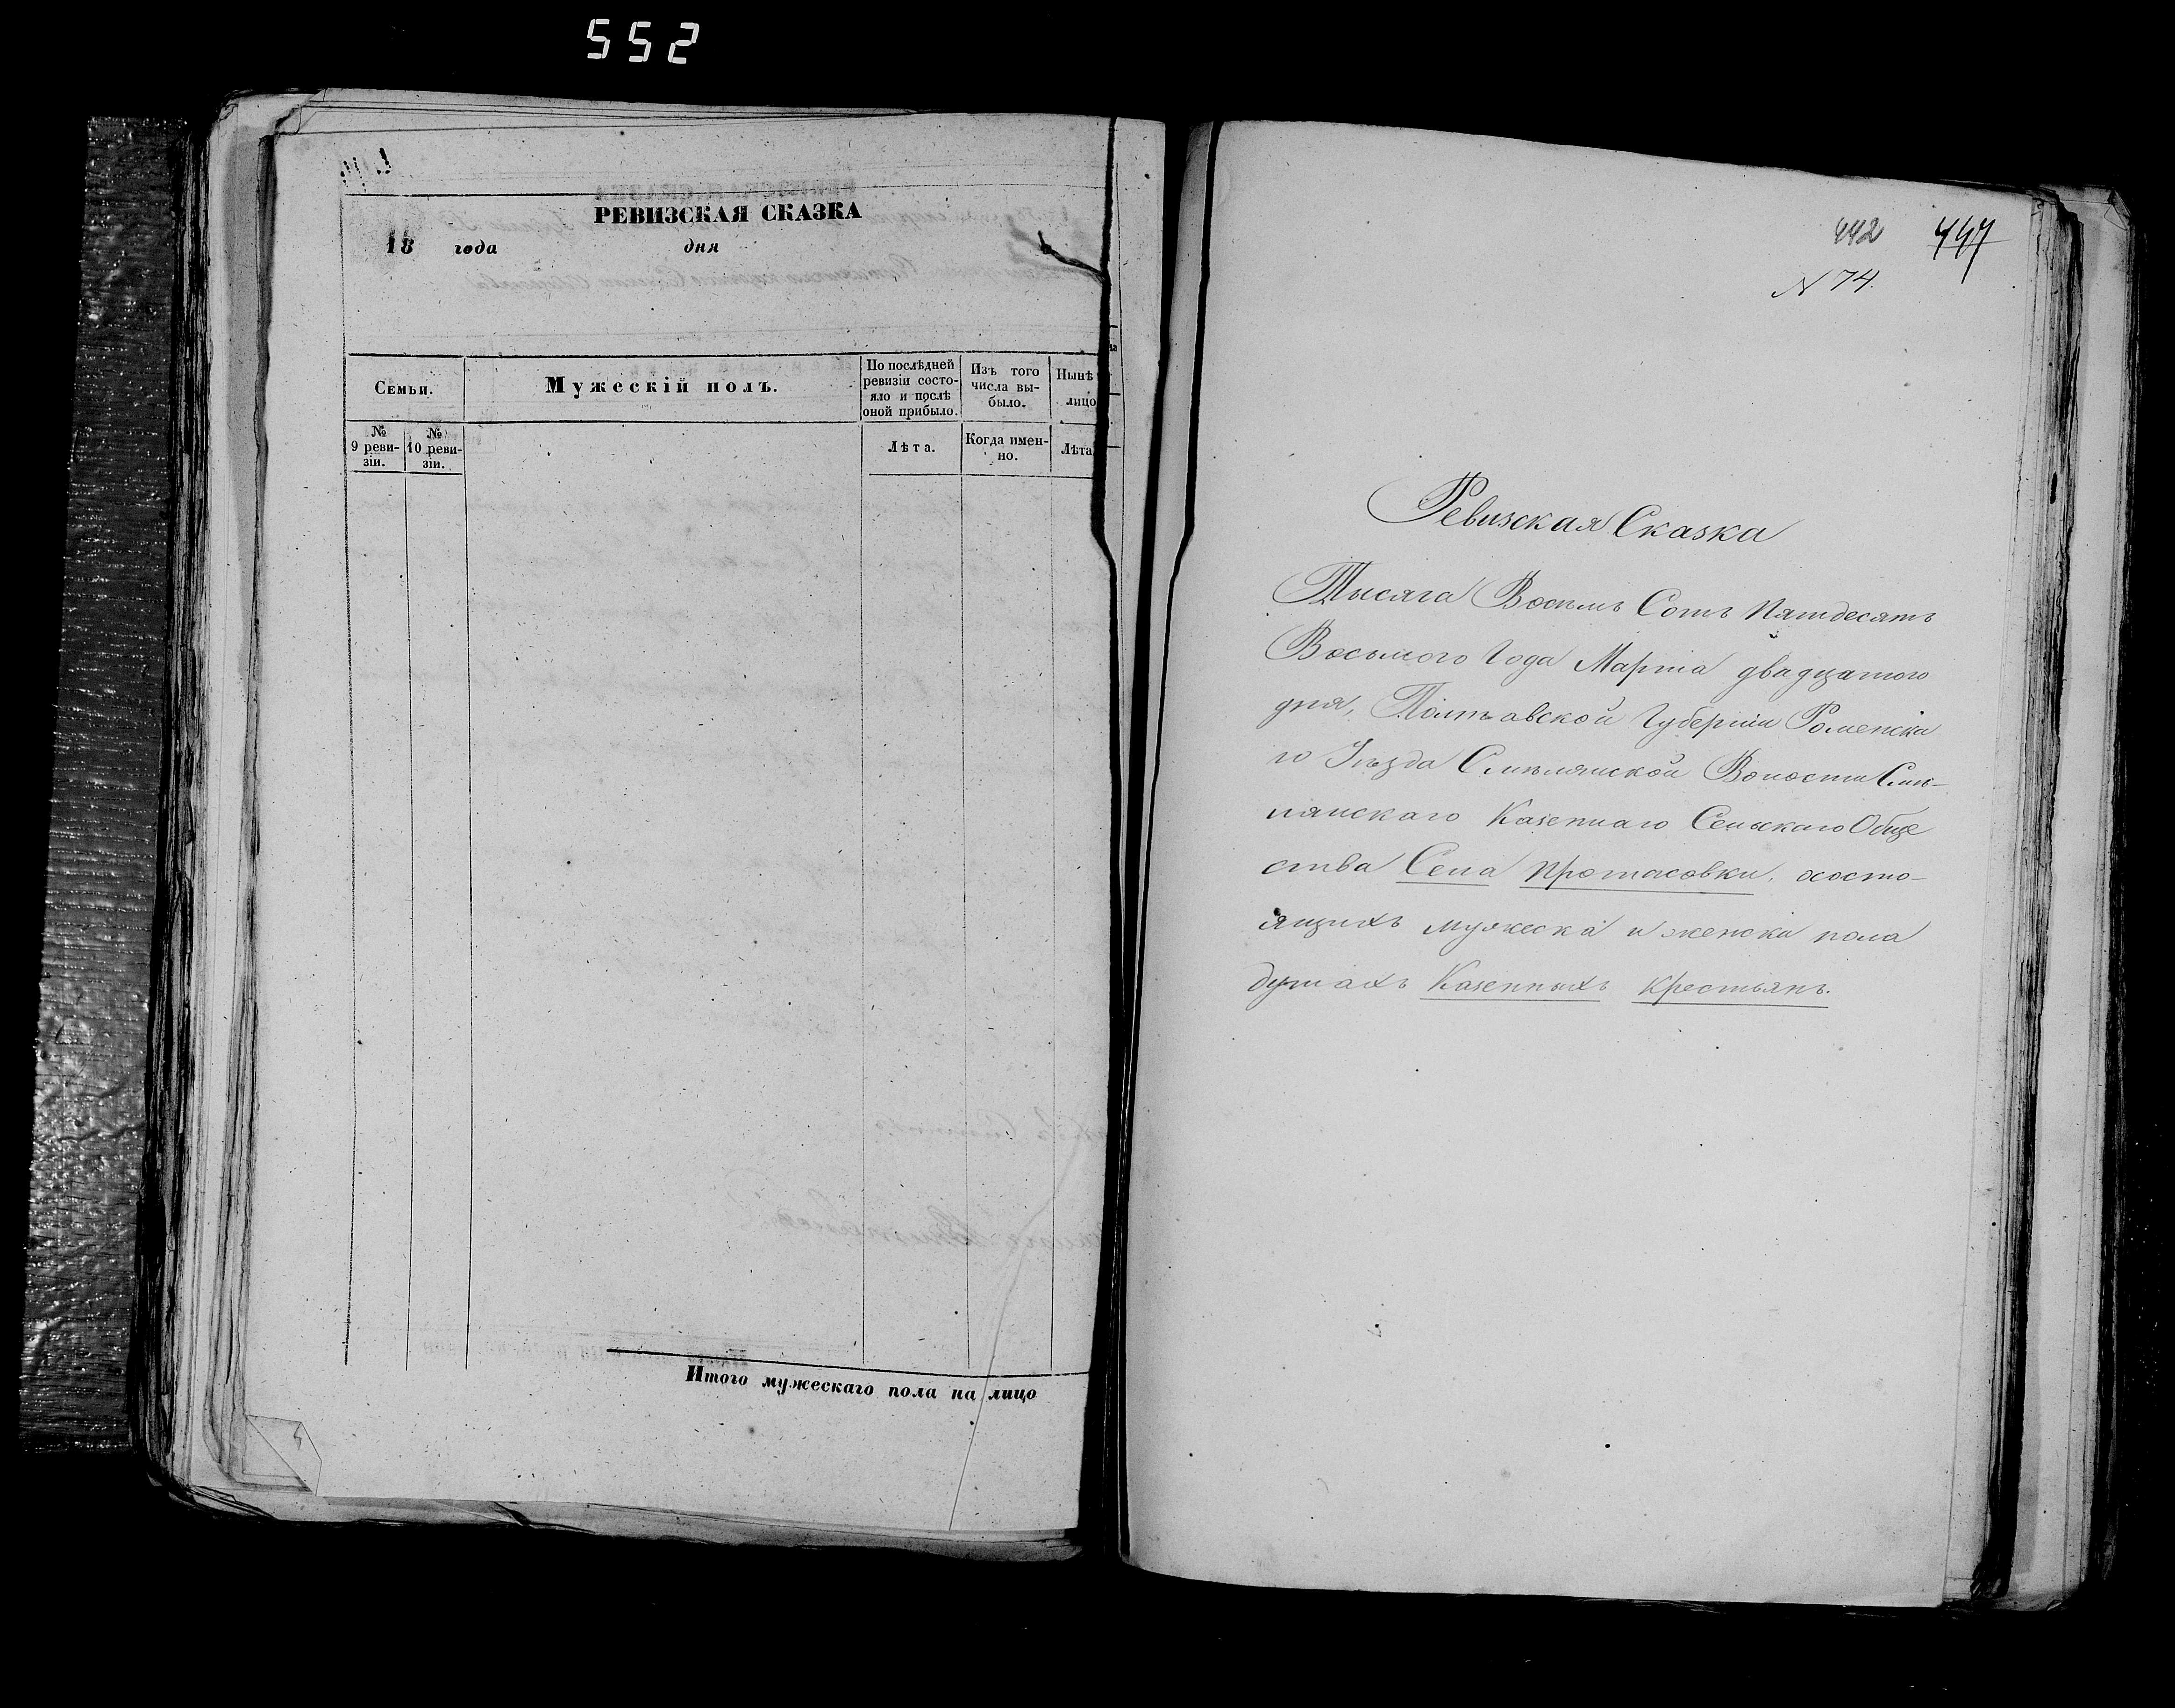 552
РЕВИЗСКАЯ СКАЗКА
18 года дня
Семьи.
Мужескій полъ.
По послѣдней ревизіи состо-
яло и послѣ оной прибыло.
Изъ того числа вы-
было.
Нынѣ
лицо
№ 9 реви-
зіи.
№ 10 реви-
зіи.
Лѣта.
Когда имен-
но.
Лѣта
Итого мужескаго пола на лицо
442 447
N 74.
Ревизская Сказка
Тысяча Восемь Сотъ Пятдесятъ
Восьмого Года Марта двадцатого
дня, Полтавской Губерніи Роменска
го Уѣзда Смѣлянской Волости Смѣ-
лянскаго Казеннаго Сельскаго Обще
ства Села Протасовки, ососто-
ящихъ мужеска и женска пола
душахъ Казенныхъ крестьянъ.